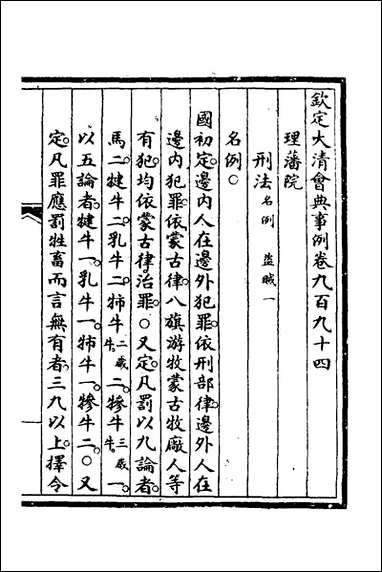 欽定大清會典事例卷九百九十四
理藩院
刑法名例 盜賊一
名例○
國初定。邊內人在邊外犯罪。依刑部律。邊外人在
邊內犯罪。依蒙古律。八旗游牧蒙古牧廠人等
有犯。均依蒙古律治罪。○又定。凡罰以九論者。
馬二。犍牛二。乳牛二。㸬牛二歲牛。二。犙牛三歲牛。一。
以五論者。犍牛一。乳牛一。㸬牛一。犙牛二。○又
定。凡罪應罰牲畜而言無有者。三九以上。擇令